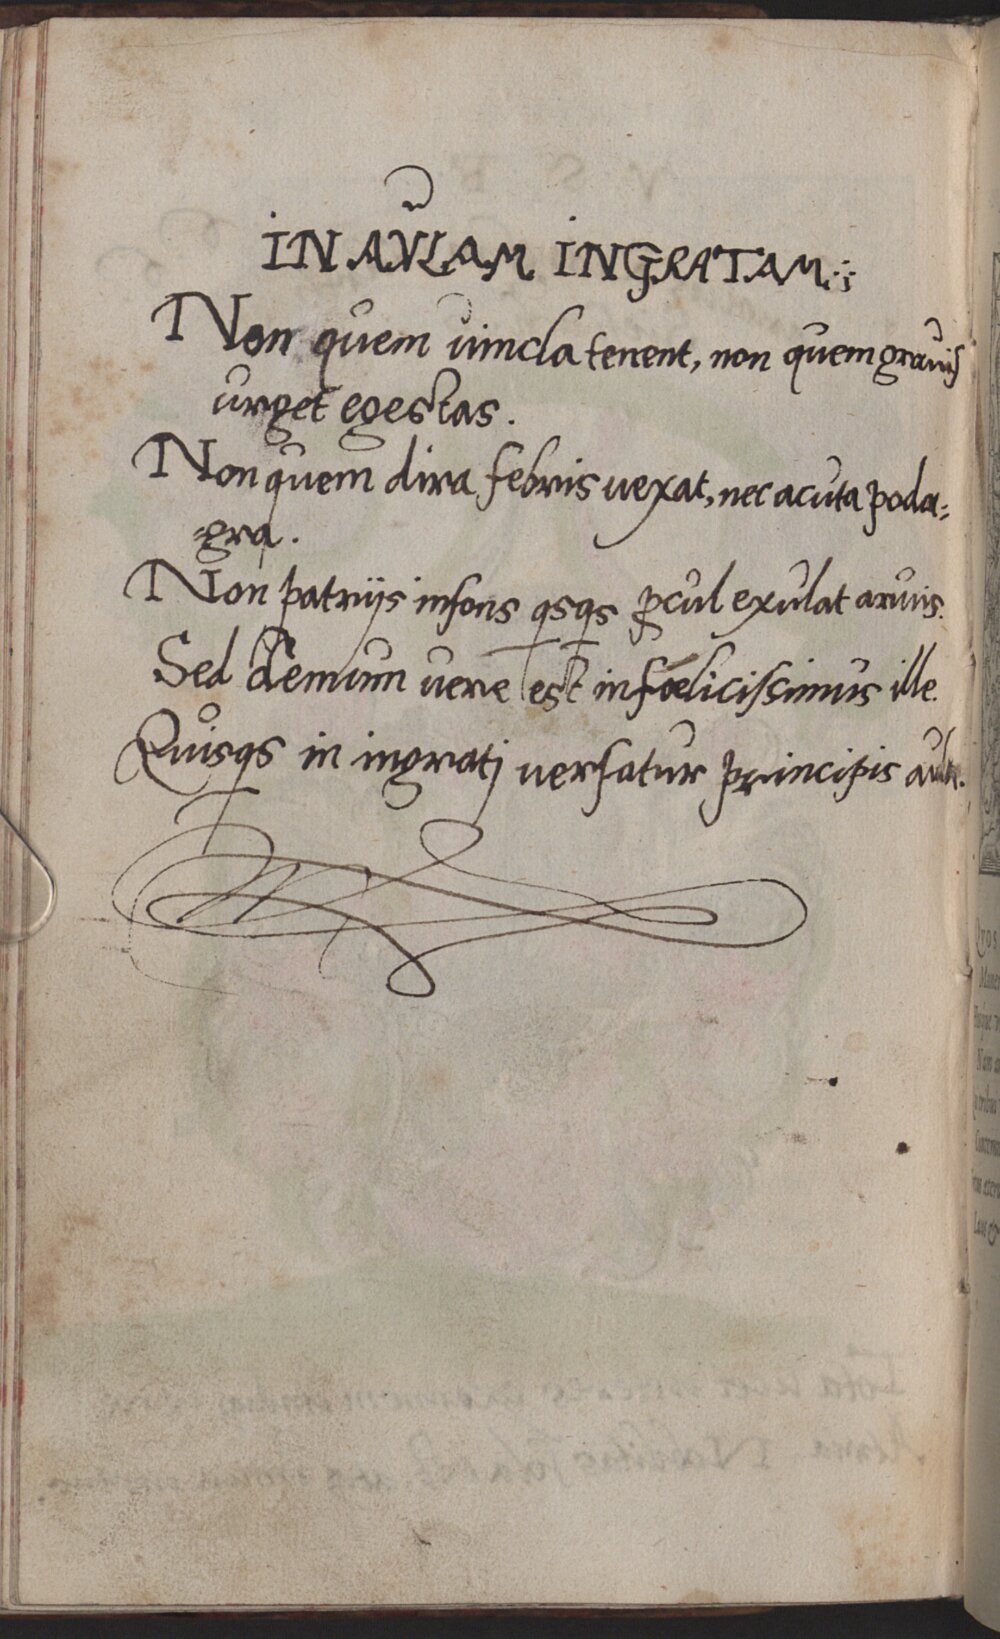 IN AVLAM INGRATAM.
Non quem uincla tenent, non quem grauis
urget egestas.
Non quem dira febris uexat, nec acuta poda=
=gra.
Non patrijs insons qsqs pcul exulat aruis.
Sed demum uere est infœlicissimus ille.
Quisqs in ingratj uersatur principis aula.